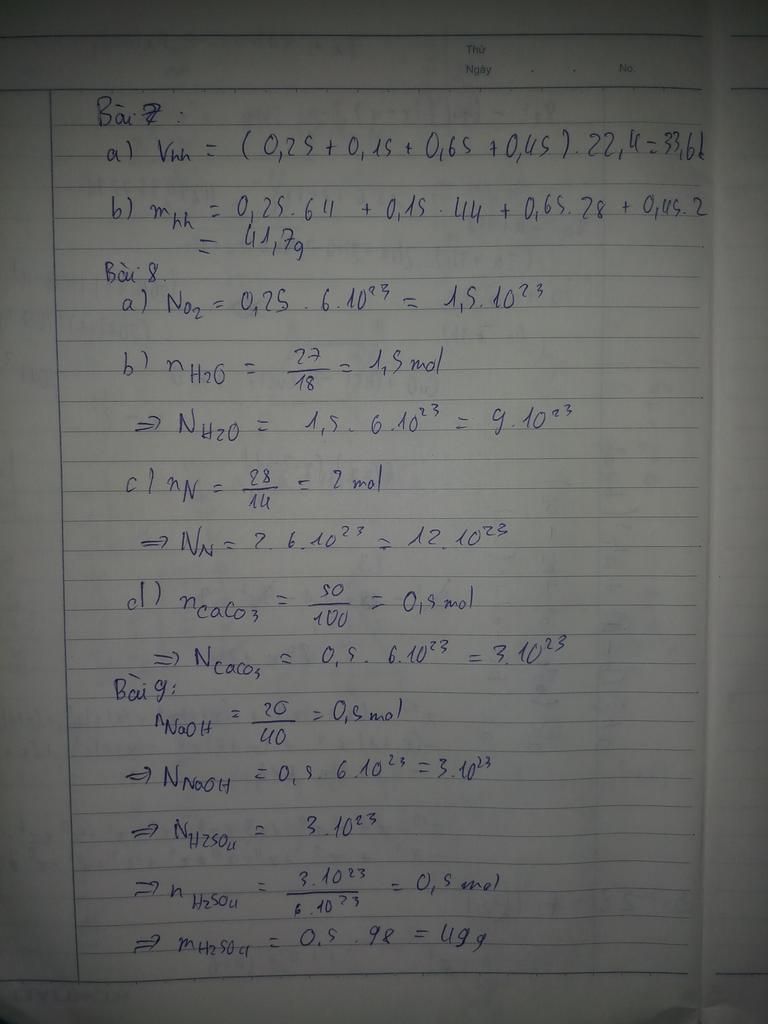 Thứ
Ngày . . No.
Bài 7 :
a) Vhh = ( 0,25 + 0,15 + 0,65 + 0,45 ) . 22,4 = 33,6l
b) mhh = 0,25 . 64 + 0,15 . 44 + 0,65 . 28 + 0,45 . 2
= 41,7g
Bài 8
a) NO2 = 0,25 . 6.10^23 = 1,5.10^23
b) nH2O = 27/18 = 1,5 mol
=> NH2O = 1,5 . 6.10^23 = 9.10^23
c) nN = 28/14 = 2 mol
=> NN = 2 . 6.10^23 = 12.10^23
d) nCaCO3 = 50/100 = 0,5 mol
=> NCaCO3 = 0,5 . 6.10^23 = 3.10^23
Bài 9:
nNaOH = 20/40 = 0,5 mol
=> NNaOH = 0,5 . 6.10^23 = 3.10^23
=> NH2SO4 = 3.10^23
=> nH2SO4 = 3.10^23/6.10^23 = 0,5 mol
=> mH2SO4 = 0,5 . 98 = 49g